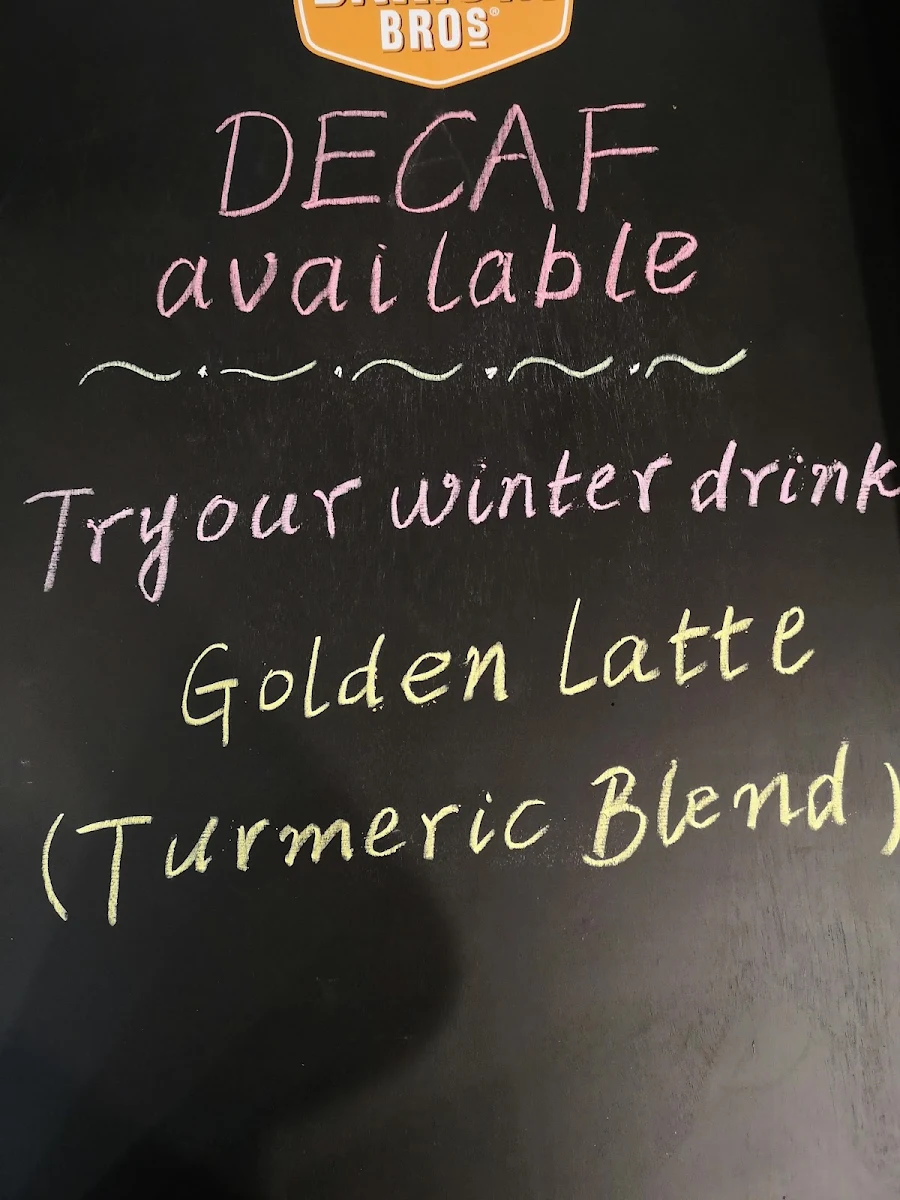 BROS®
DECAF
available
Try our winter drink
Golden Latte
(Turmeric Blend)